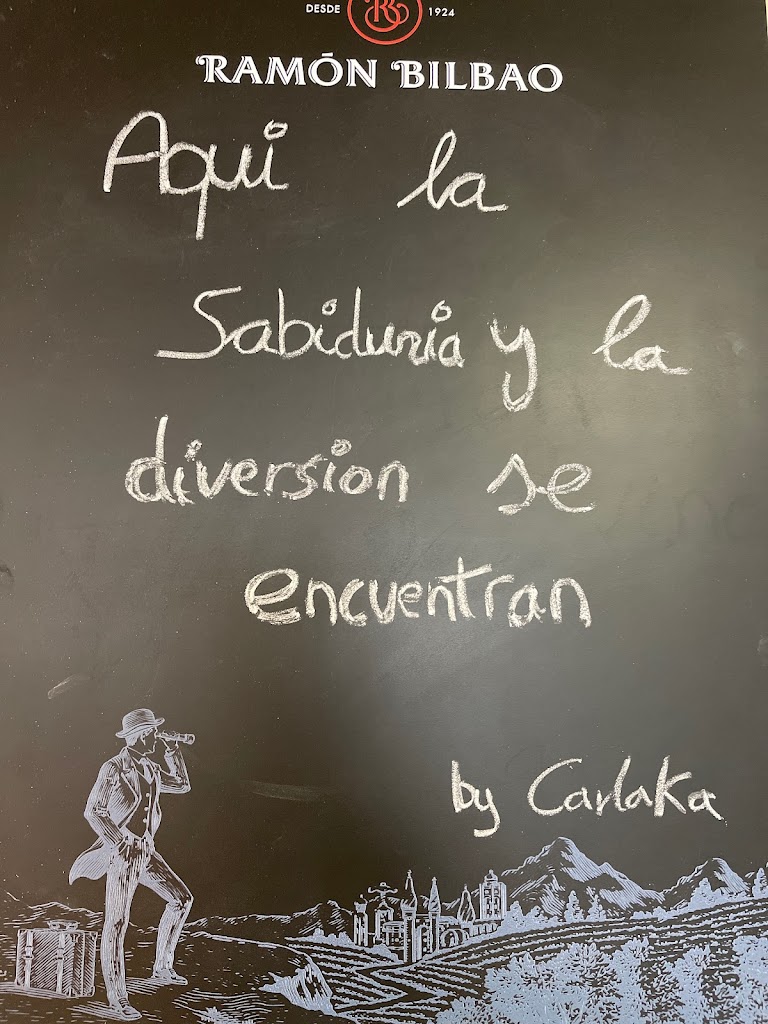 DESDE 1924
RAMÓN BILBAO
Aqui la
Sabiduria y la
diversion se
encuentran
by Carlaka